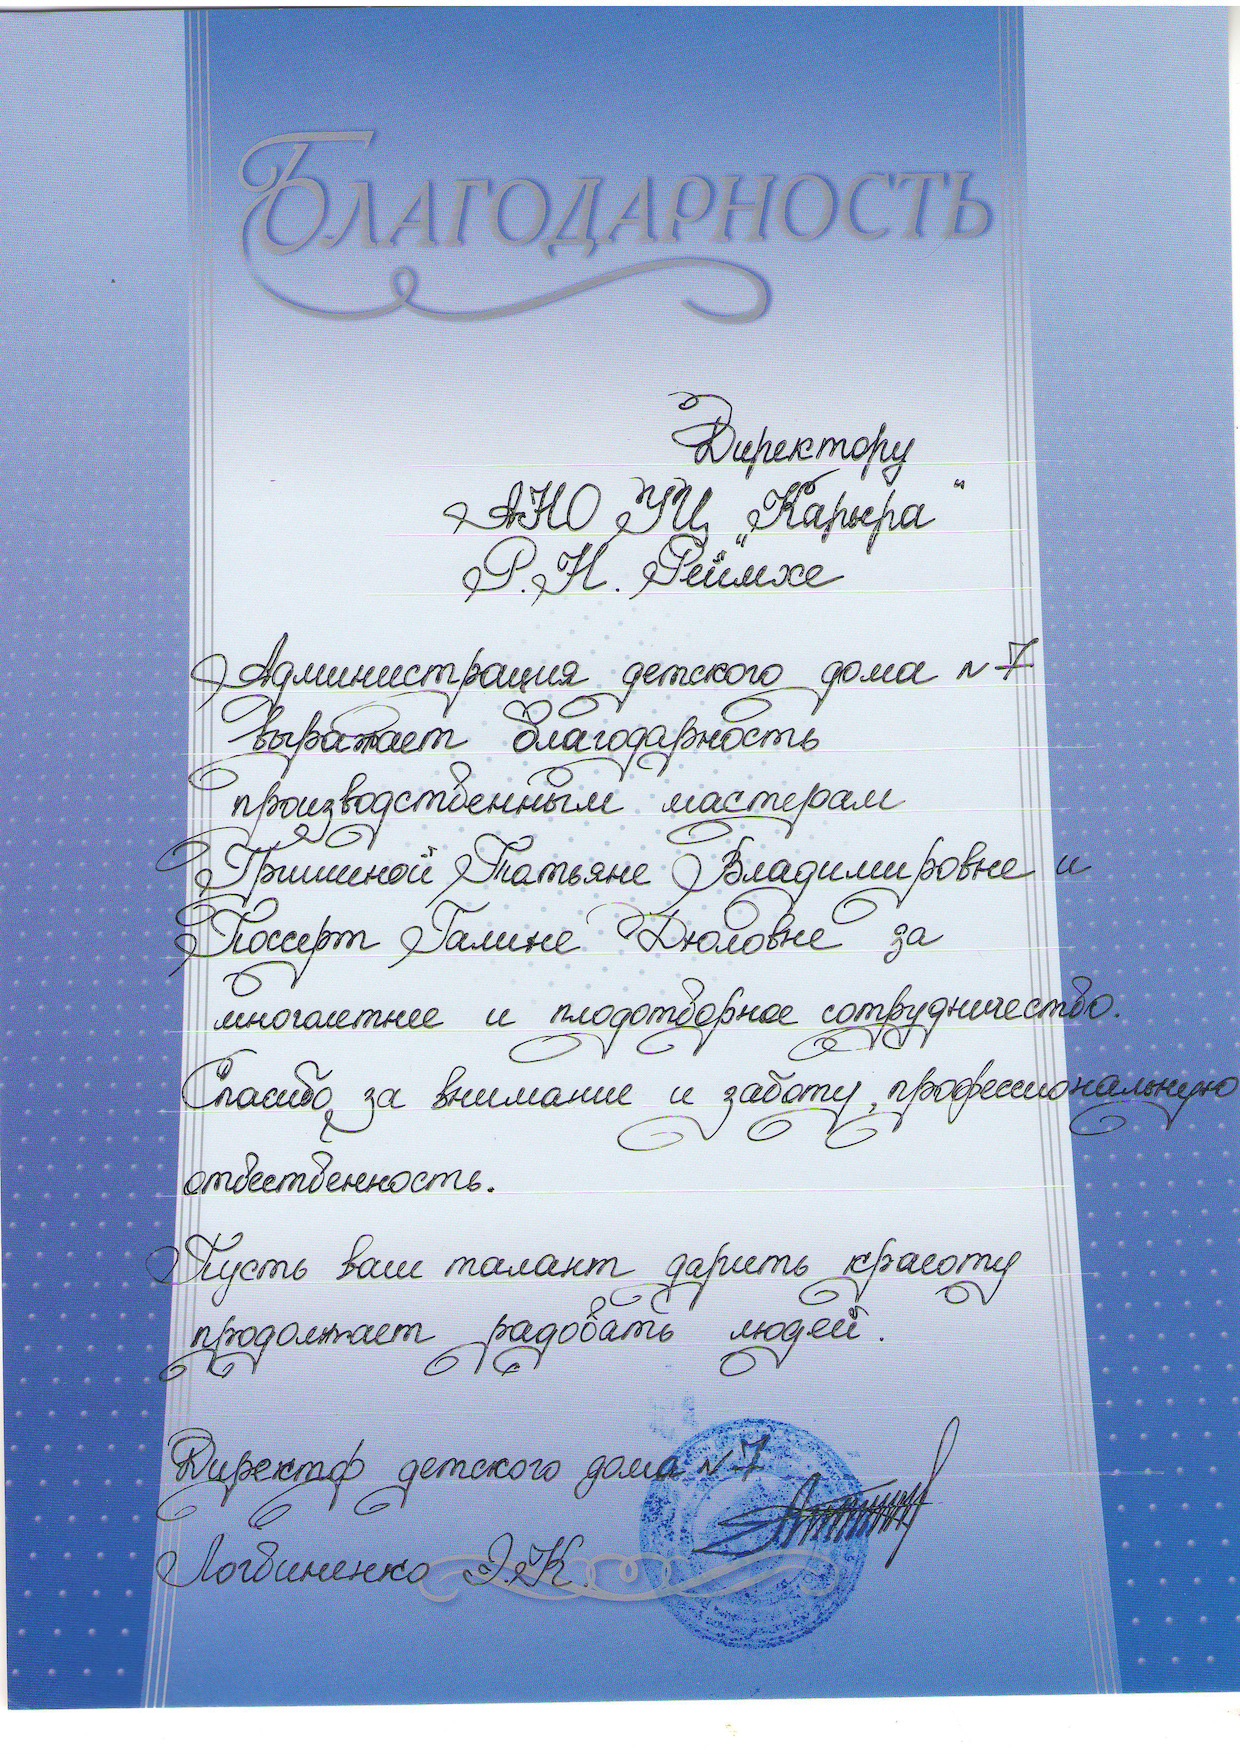 Благодарность
Директору
АНО УЦ „Карьера“
Р.Н. Реймхе
Администрация детского дома № 7
выражает благодарность
производственным мастерам
Гришиной Татьяне Владимировне и
Поссерт Галине Дюловне за
многолетнее и плодотворное сотрудничество.
Спасибо за внимание и заботу, профессиональную
ответственность.
Пусть ваш талант дарить красоту
продолжает радовать людей.
Директор детского дома № 7
Логвиненко Э.К.